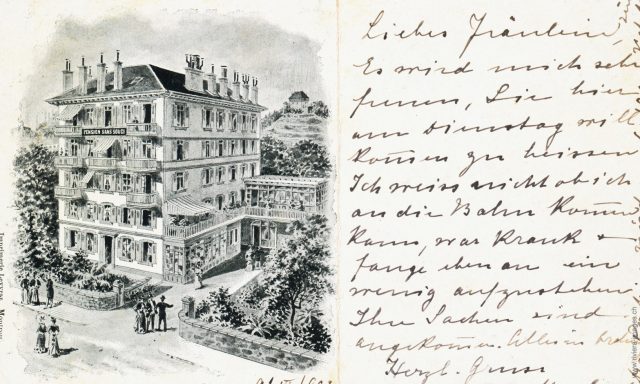 PENSION SANS SOUCI
Liebes Fräulein,
Es wird mich sehr
freuen, Sie hier
am Dienstag will
kommen zu heissen
Ich weiss nicht ob ich
an die Bahn komme
kann, war krank +
fange eben an ein
wenig aufzustehen.
Ihre Sachen sind
angekommen. Alles in
Herzl. Gruss